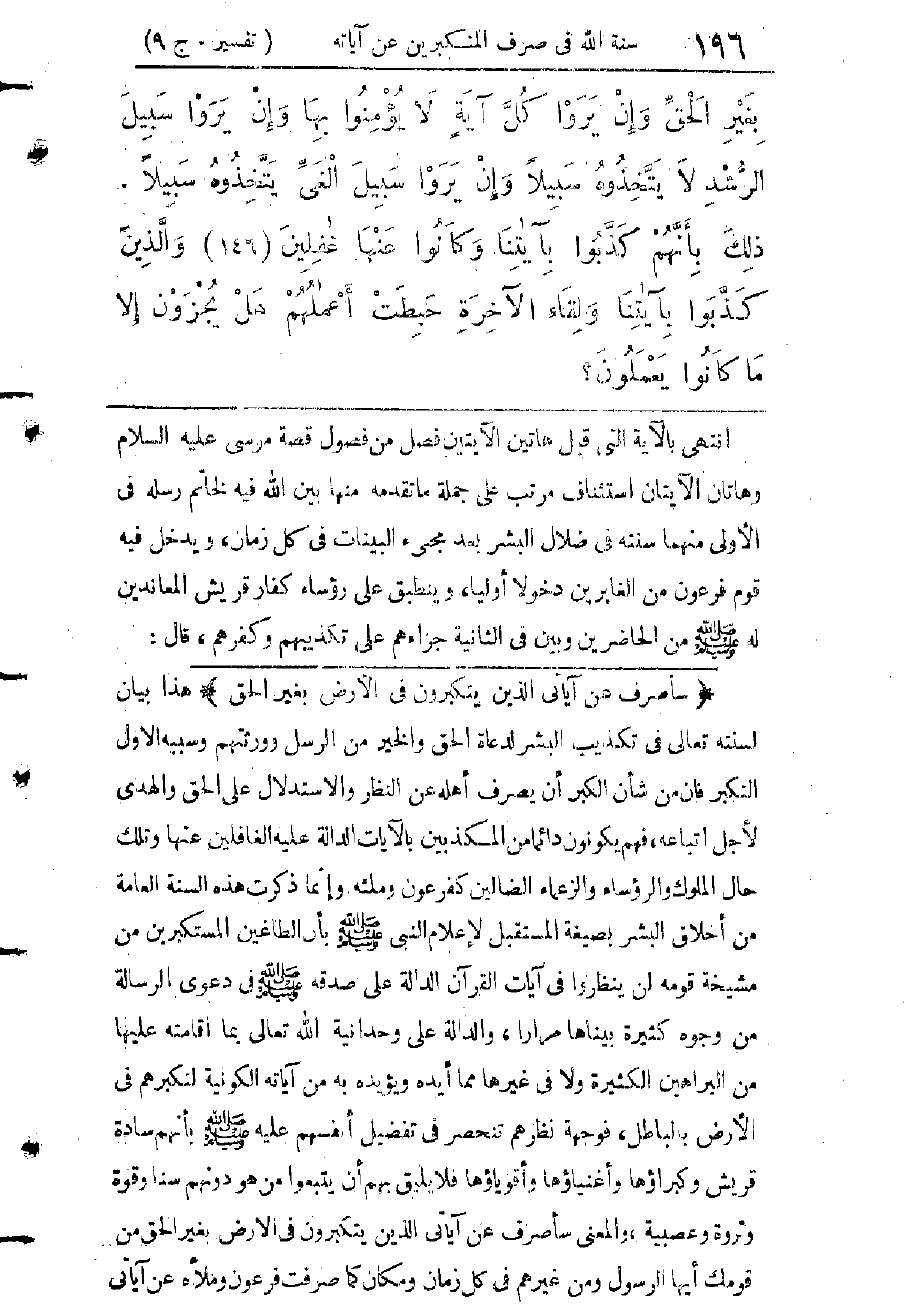 ١٩٦ سنة الله فى صرف المتكبرين عن آياته ( تفسير . ج ٩ )
بِغَيْرِ الْحَقِّ وَإِنْ يَرَوْا كُلَّ آيَةٍ لَا يُؤْمِنُوا بِهَا وَإِنْ يَرَوْا سَبِيلَ
الرُّشْدِ لَا يَتَّخِذُوهُ سَبِيلاً وَإِنْ يَرَوْا سَبِيلَ الْغَيِّ يَتَّخِذُوهُ سَبِيلاً .
ذٰلِكَ بِأَنَّهُمْ كَذَّبُوا بِآيَٰتِنَا وَكَانُوا عَنْهَا غَٰفِلِينَ (١٤٦) وَالَّذِينَ
كَذَّبُوا بِآيَٰتِنَا وَلِقَاءِ الْآخِرَةِ حَبِطَتْ أَعْمَٰلُهُمْ هَلْ يُجْزَوْنَ إِلَّا
مَا كَانُوا يَعْمَلُونَ؟
انتهى بالآية التى قبل هاتين الآيتين فصل من فصول قصة موسى عليه السلام
وهاتان الآيتان استئناف مرتب على جملة ماتقدمه منها بين الله فيه لخاتم رسله فى
الأولى منهما سنته فى ضلال البشر بعد مجىء البينات فى كل زمان، ويدخل فيه
قوم فرعون من الغابرين دخولا أوليا، وينطبق على رؤساء كفار قريش المعاندين
له ﷺ من الحاضرين وبين فى الثانية جزاءهم على تكذيبهم وكفرهم ، قال :
﴿ سأصرف عن آياتى الذين يتكبرون فى الأرض بغير الحق ﴾ هذا بيان
لسنته تعالى فى تكذيب البشر لدعاة الحق والخير من الرسل وورثتهم وسببه الاول
التكبر فان من شأن الكبر أن يصرف أهله عن النظر والاستدلال على الحق والهدى
لأجل اتباعه، فهم يكونون دائما من المكذبين بالآيات الدالة عليه الغافلين عنها وتلك
حال الملوك والرؤساء والزعماء الضالين كفرعون وملئه. وإنما ذكرت هذه السنة العامة
من أخلاق البشر بصيغة المستقبل لإعلام النبى ﷺ بأن الطاغين المستكبرين من
مشيخة قومه لن ينظروا فى آيات القرآن الدالة على صدقه ﷺ فى دعوى الرسالة
من وجوه كثيرة بيناها مرارا ، والدالة على وحدانية الله تعالى بما أقامته عليها
من البراهين الكثيرة ولا فى غيرها مما أيده ويؤيده به من آياته الكونية لتكبرهم فى
الأرض بالباطل، فوجهة نظرهم تنحصر فى تفضيل أنفسهم عليه ﷺ بأنهم سادة
قريش وكبراؤها وأغنياؤها وأقوياؤها فلا يليق بهم أن يتبعوا من هو دونهم سنا وقوة
وثروة وعصبية ، والمعنى سأصرف عن آياتى الذين يتكبرون فى الارض بغير الحق من
قومك أيها الرسول ومن غيرهم فى كل زمان ومكان كما صرفت فرعون وملأه عن آياتى